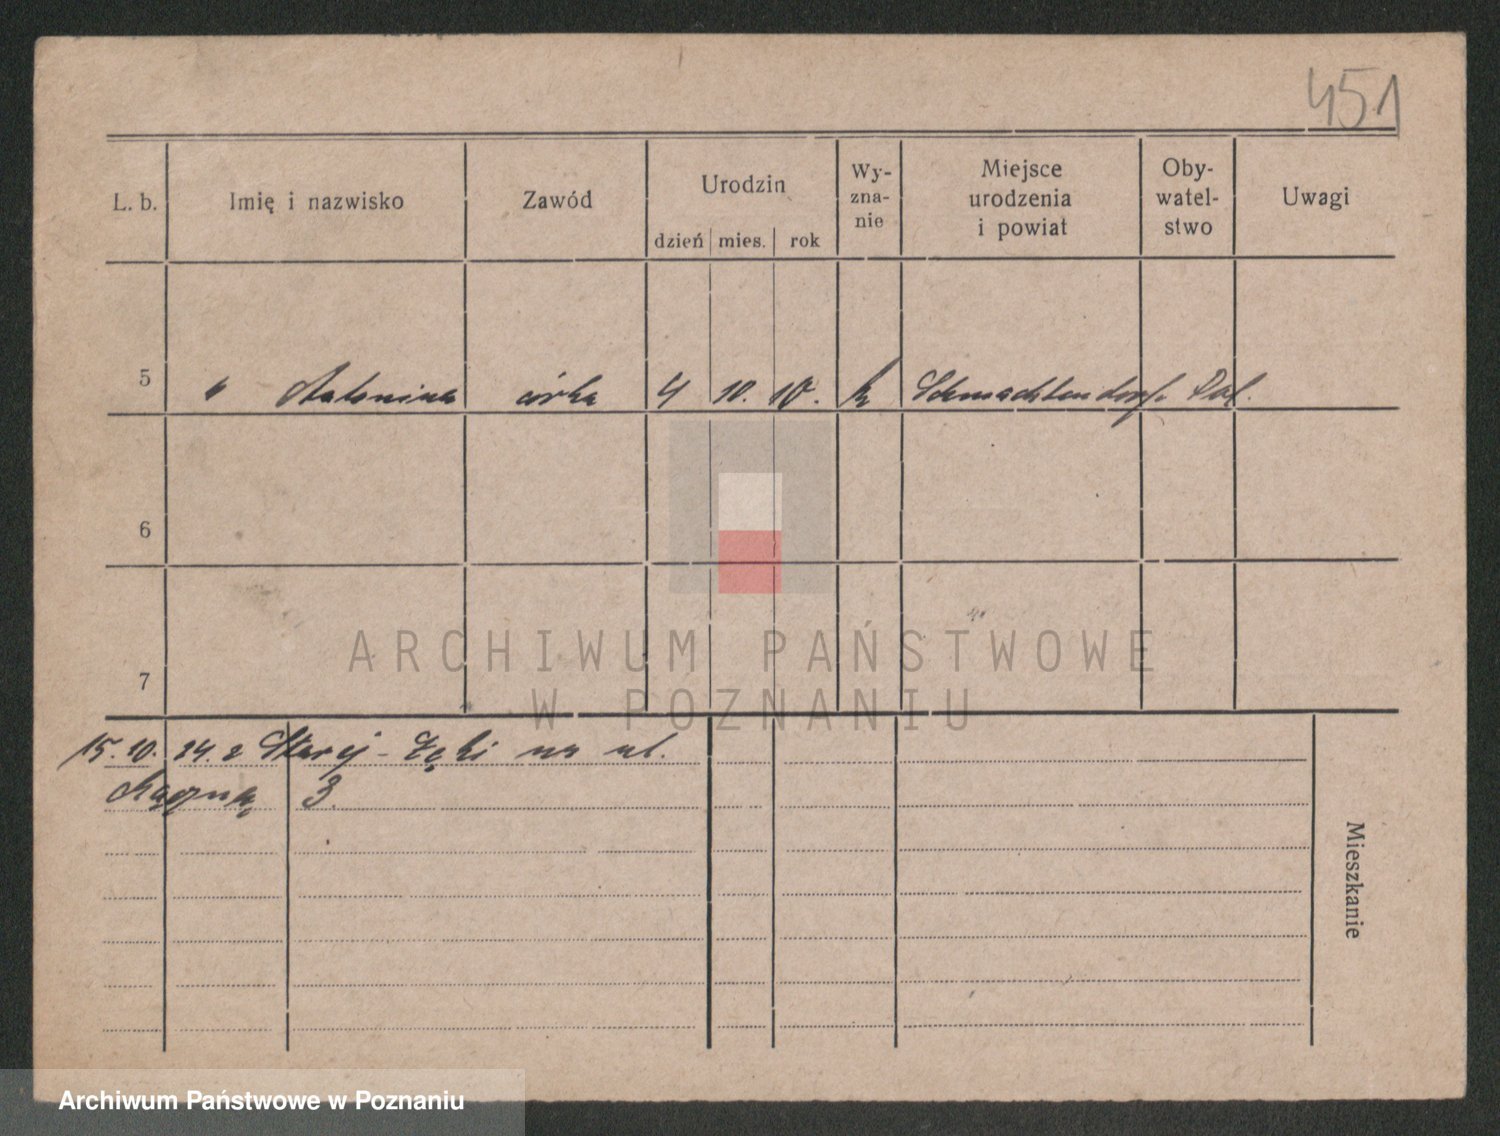 451
L. b. Imię i nazwisko Zawód Urodzin dzień mies. rok Wy-zna-nie Miejsce urodzenia i powiat Oby-watel-stwo Uwagi
5 " Antonina córka 4 10. 10. k Schmachtendorf Pol.
6
7
ARCHIWUM PAŃSTWOWE
W POZNANIU
15. 10. 24. z Starej-Łęki na ul.
3.
Mieszkanie
Archiwum Państwowe w Poznaniu